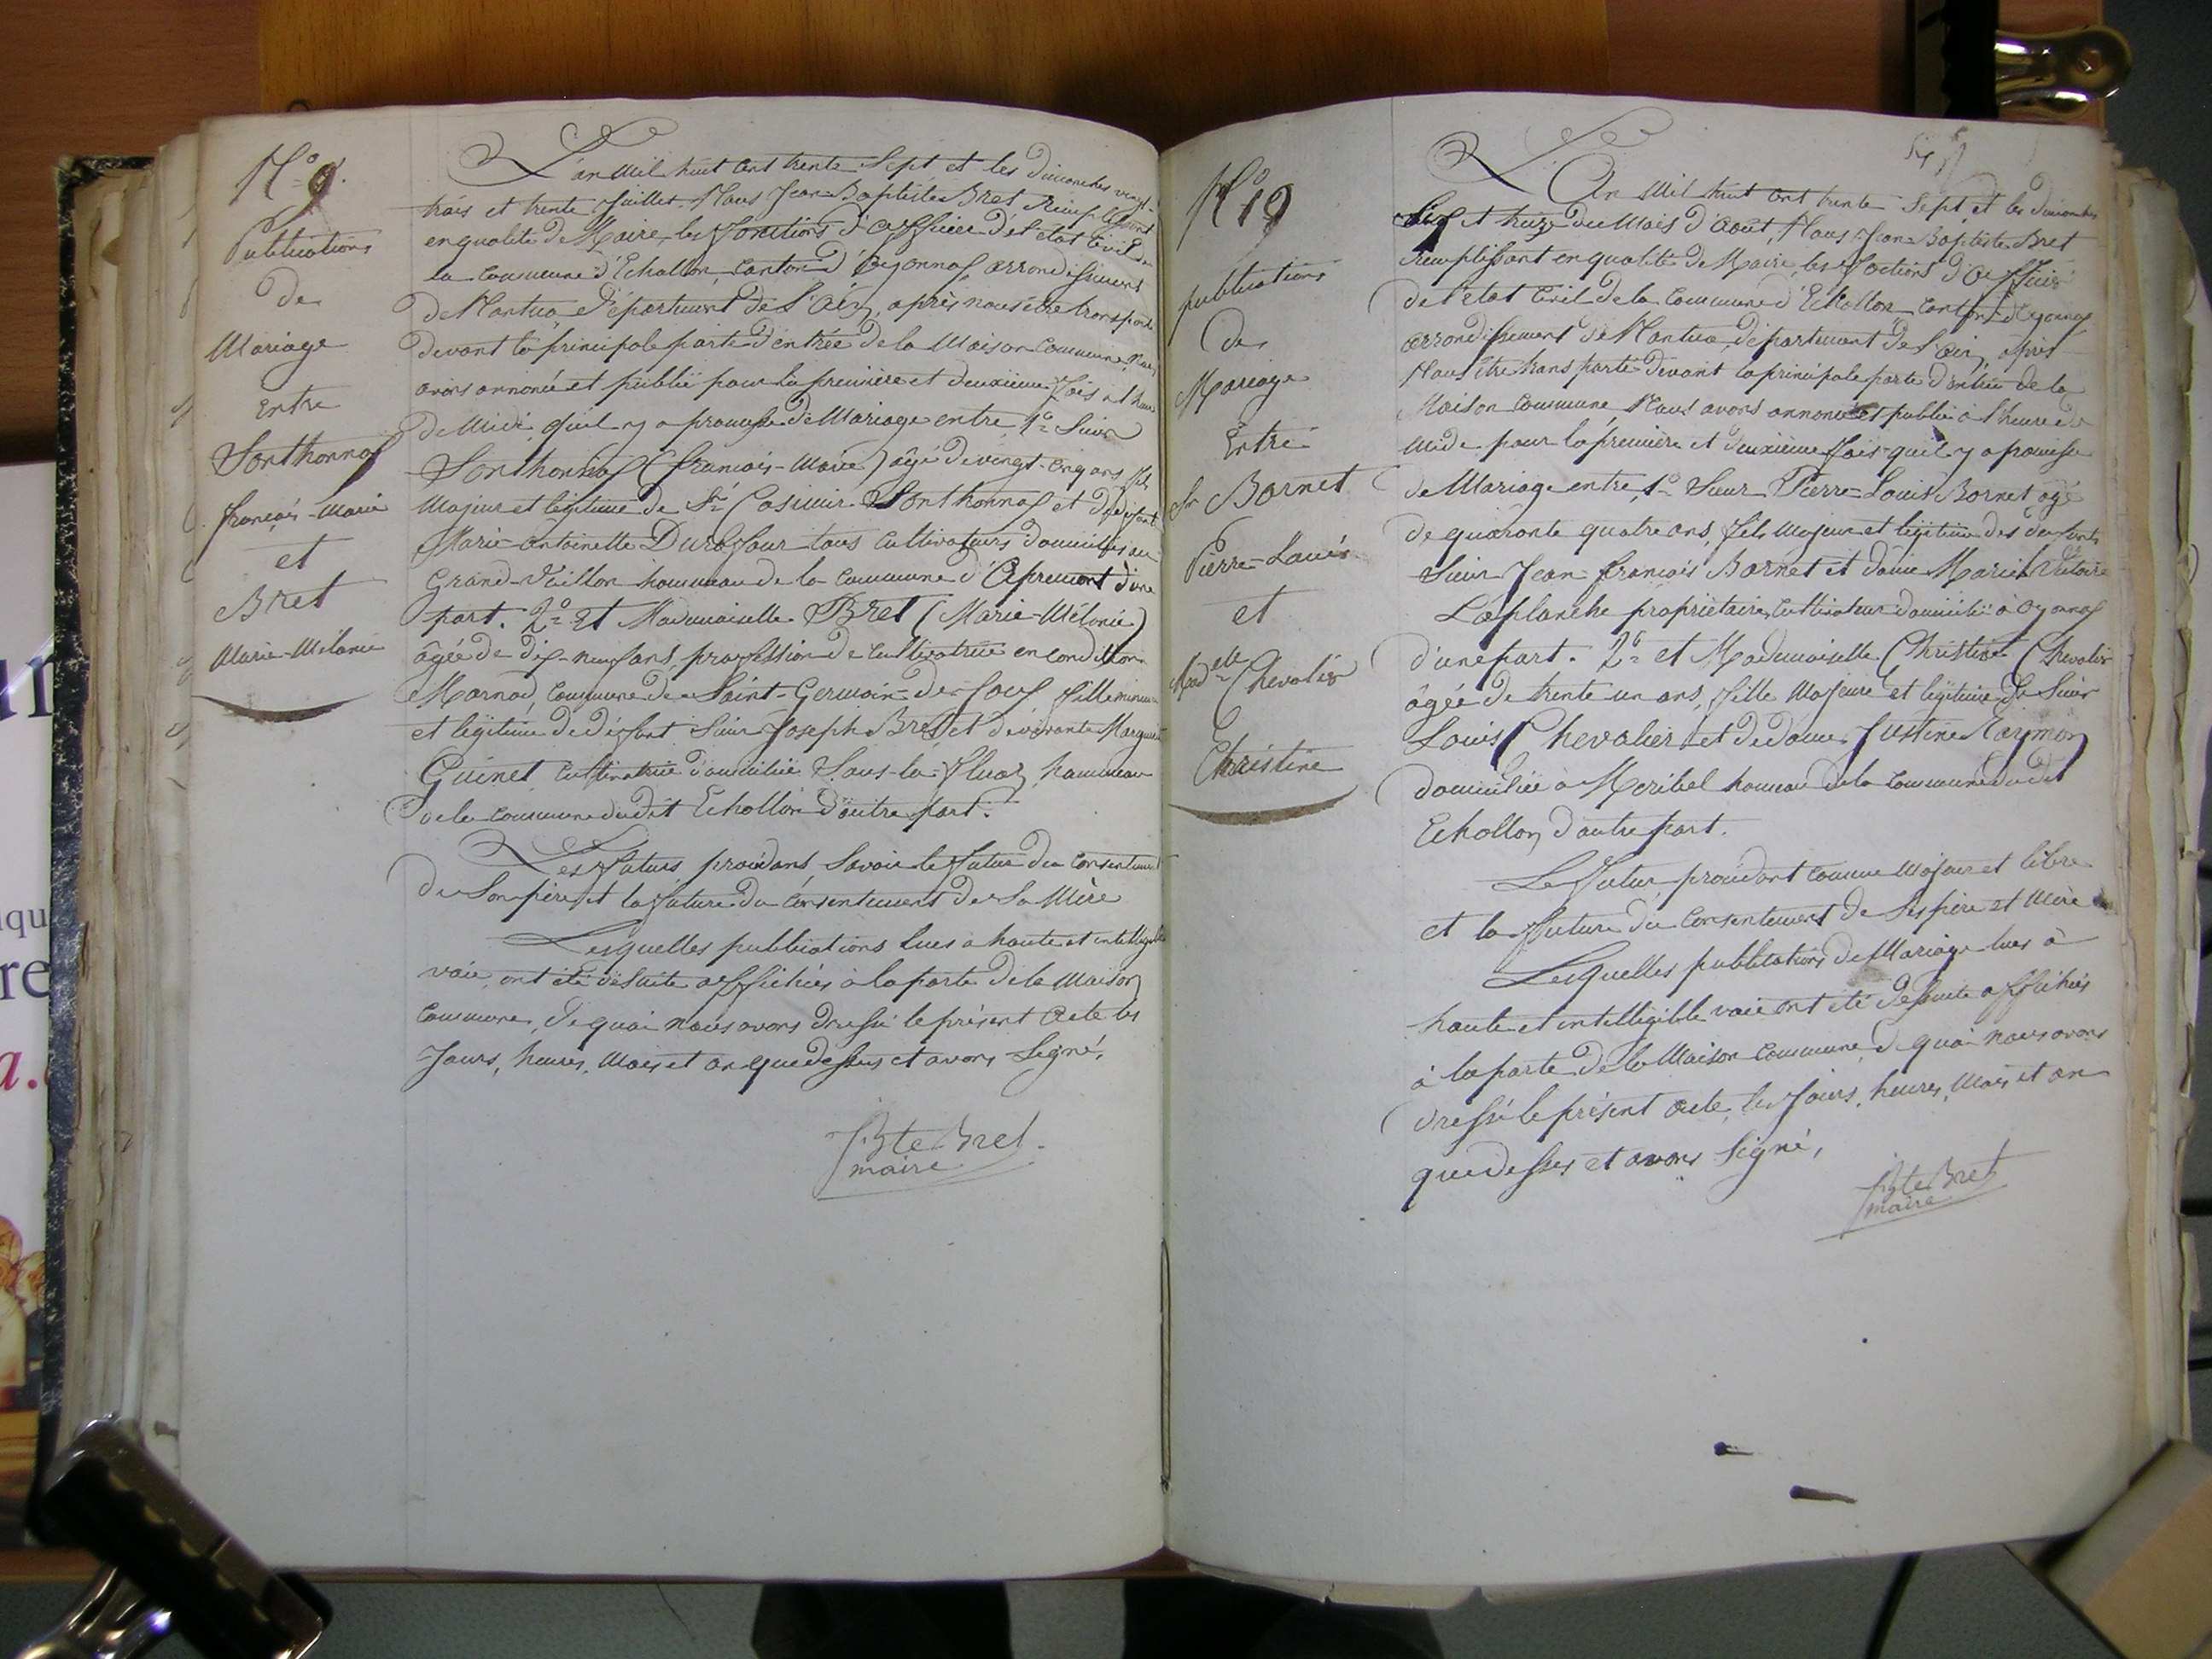 N.º 9.
Publications
de
Mariage
Entre
Sonthonnax
françois-Marie
et
Bret
Marie-Mélanie
L'an Mil huit Cent trente Sept, et les dimanches vingt-
trois et trente Juillet. Nous Jean-Baptiste Bret remplissant
en qualité de Maire, les fonctions d'officier de l'état Civil de
la Commune d'Echallon, Canton d'Oyonnax, arrondissement
de Nantua département de L'Ain, après nous être transporté
devant la principale porte d'entrée de la Maison Commune, nous
avons annoncé et publié pour la première et deuxième fois à l'heure
de Midi, qu'il y a promesse de Mariage entre, 1º Sieur
Sonthonnax (françois-Marie) âgé de vingt-cinq ans, fils
Majeur et légitime de Sr. Casimir Sonthonnax et de défunte
Marie-antoinette Duraffour tous Cultivateurs domiciliés au
Grand-Vaillon hammeau de la Commune d'Apremont d'une
part. 2º Et Mademoiselle Bret (Marie-Mélanie)
âgée de dix-neuf ans, profession de Cultivatrice en condition
Marnod, Commune de Saint-Germain-de-Joux fille mineure
et légitime de défunt Sieur Joseph Bret, et de vivante Marguerite
Guinet, Cultivatrice domiciliée Sous-la-fluaz, hammeau
de la Commune dudit Echallon d'autre part.
Les futurs procédans, Savoir le futur du Consentement
de Son père, et la future du Consentement de Sa Mère
Lesquelles publications lues à haute et intelligible
voie, ont été desuite affichées à la porte de la Maison
Commune, de quoi nous avons dressé le présent Acte les
Jours, heures, Mois et an que dessus et avons Signé.
JBte Bret
maire
N.º 10
publications
de
Mariage
Entre
Sr Bornet
Pierre-Louis
et
Madelle Chevalier
Christine
L'An Mil huit Cent trente Sept, et les dimanches
Six et treize du Mois d'Août, Nous Jean-Baptiste Bret
remplissant en qualité de Maire, les foctions d'Officier
de l'état Civil de la Commune d'Echallon, Canton d'Oyonnax
arrondissement de Nantua, département de L'Ain, après
Nous être transporté devant la principale porte d'entrée de la
Maison Commune, Nous avons annoncé et publié à l'heure de
Mide pour la première et deuxième fois qu'il y a promesse
de Mariage entre, 1º Sieur Pierre-Louis Bornet âgé
de quarante quatre ans, fils Majeur et légitime des défunts
Sieur Jean-françois Bornet et dame Marie Victoire
Laplanche propriétaire, Cultivateur domicilié à Oyonnax
d'une part. 2º et Mademoiselle Christine Chevalier
âgée de trente un ans, fille Majeure et légitime de Sieur
Louis Chevalier, et de dame Justine Raymon
domiciliée à Meribel hameau de la Commune dudit
Echallon d'autre part.
Le futur procédant comme Majeur et libre
et la future du Consentement de Ses père et Mère
Lesquelles publications de Mariage lues à
haute et intelligible voie ont été desuite affichées
à la porte de la Maison Commune, de quoi nous avons
dressé le présent acte, les Jours, heures, Mois et an
que dessus et avons Signé,
JBte Bret
maire